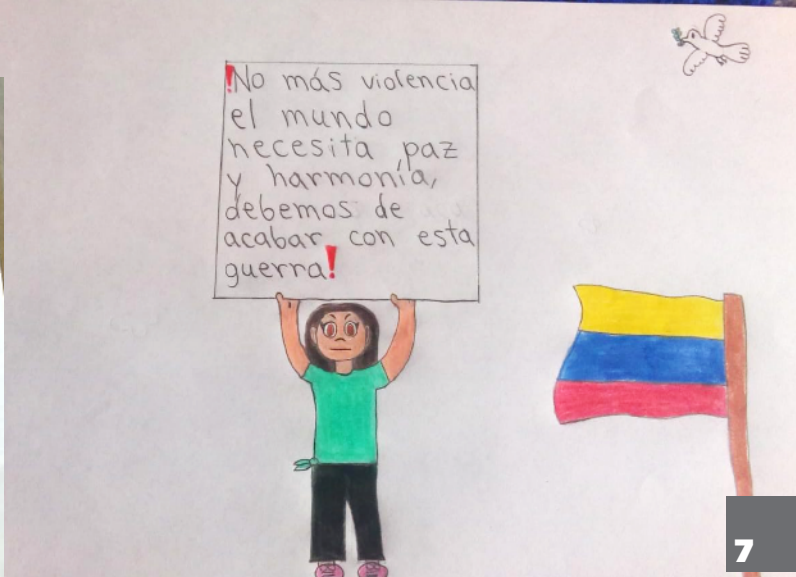 !No más violencia
el mundo
necesita paz
y harmonía,
debemos de
acabar con esta
guerra!
7